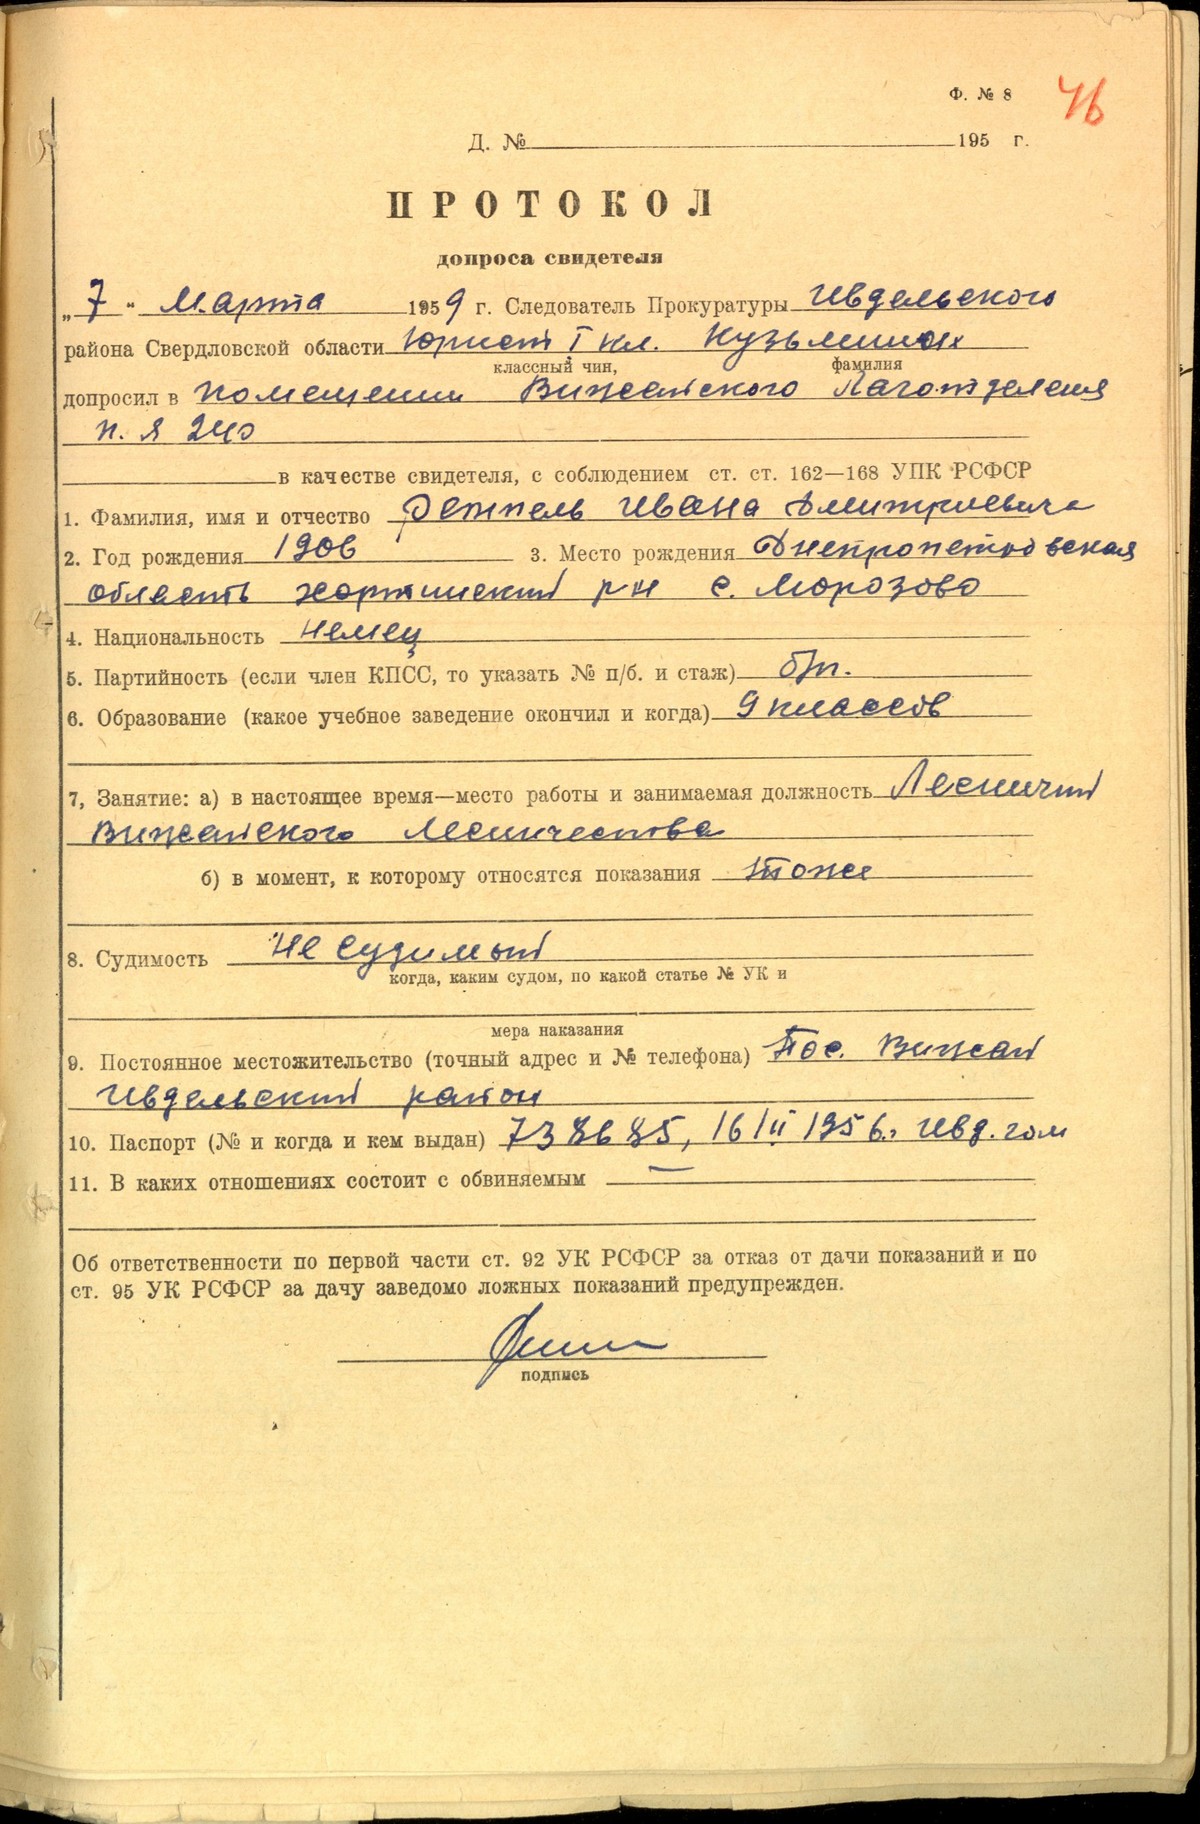 Ф. № 8
46
Д. № 195 г.
ПРОТОКОЛ
допроса свидетеля
„7" Марта 1959 г. Следователь Прокуратуры Ивдельского
района Свердловской области Юрист I кл. Кузьминых
классный чин, фамилия
допросил в помещении Вижайского Лаготделения
п. я 240
в качестве свидетеля, с соблюдением ст. ст. 162—168 УПК РСФСР
1. Фамилия, имя и отчество Ремпель Ивана Дмитриевича
2. Год рождения 1906 3. Место рождения Днепропетровская
область хортицкий р-н с. Морозово
4. Национальность немец
5. Партийность (если член КПСС, то указать № п/б. и стаж) б/п.
6. Образование (какое учебное заведение окончил и когда) 9 классов
7, Занятие: а) в настоящее время—место работы и занимаемая должность Лесничий
Вижайского Лесничества
б) в момент, к которому относятся показания тоже
8. Судимость Не судимый
когда, каким судом, по какой статье № УК и
мера наказания
9. Постоянное местожительство (точный адрес и № телефона) Пос. Вижай
Ивдельский район
10. Паспорт (№ и когда и кем выдан) 738685, 16/II 1956. Ивд. гом
11. В каких отношениях состоит с обвиняемым —
Об ответственности по первой части ст. 92 УК РСФСР за отказ от дачи показаний и по
ст. 95 УК РСФСР за дачу заведомо ложных показаний предупрежден.
подпись